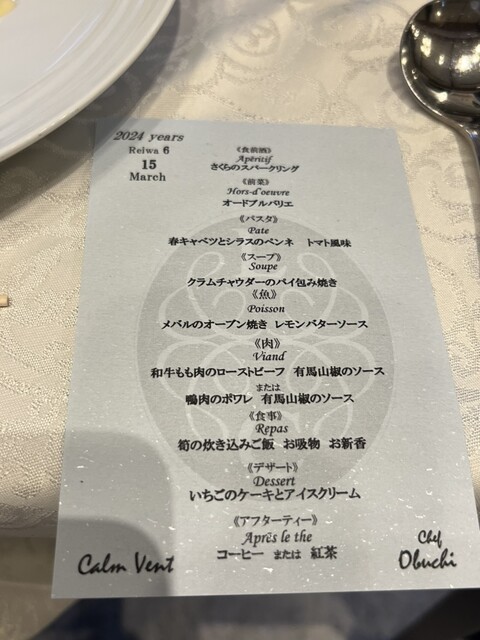 2024 years
Reiwa 6
15
March
《食前酒》
Apéritif
さくらのスパークリング
《前菜》
Hors-d'oeuvre
オードブルバリエ
《パスタ》
Pate
春キャベツとシラスのペンネ　トマト風味
《スープ》
Soupe
クラムチャウダーのパイ包み焼き
《魚》
Poisson
メバルのオーブン焼き レモンバターソース
《肉》
Viand
和牛もも肉のローストビーフ 有馬山椒のソース
または
鴨肉のポワレ 有馬山椒のソース
《食事》
Repas
筍の炊き込みご飯 お吸物 お新香
《デザート》
Dessert
いちごのケーキとアイスクリーム
《アフターティー》
Aprés le the
コーヒー または 紅茶
Calm Vent
Chef
Obuchi